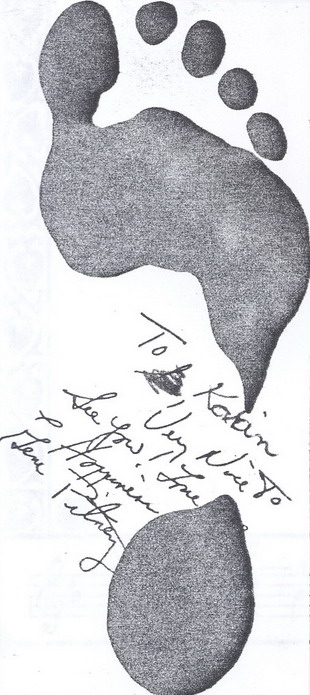 To Katrin
Very Nice To
See you! Love
& Happiness
Gene Pitney